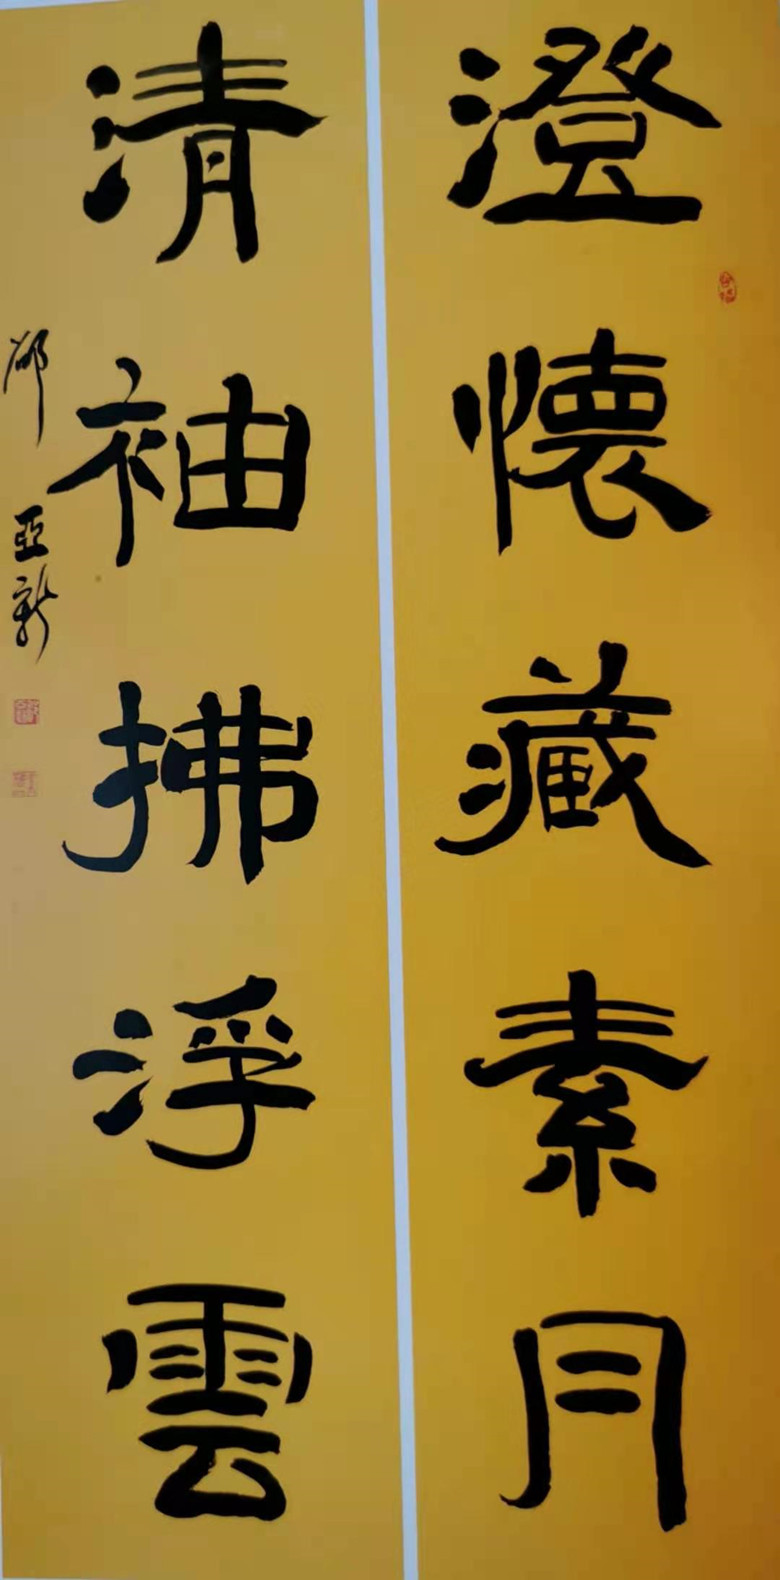 澄懷藏素月
清袖拂浮雲
亞新